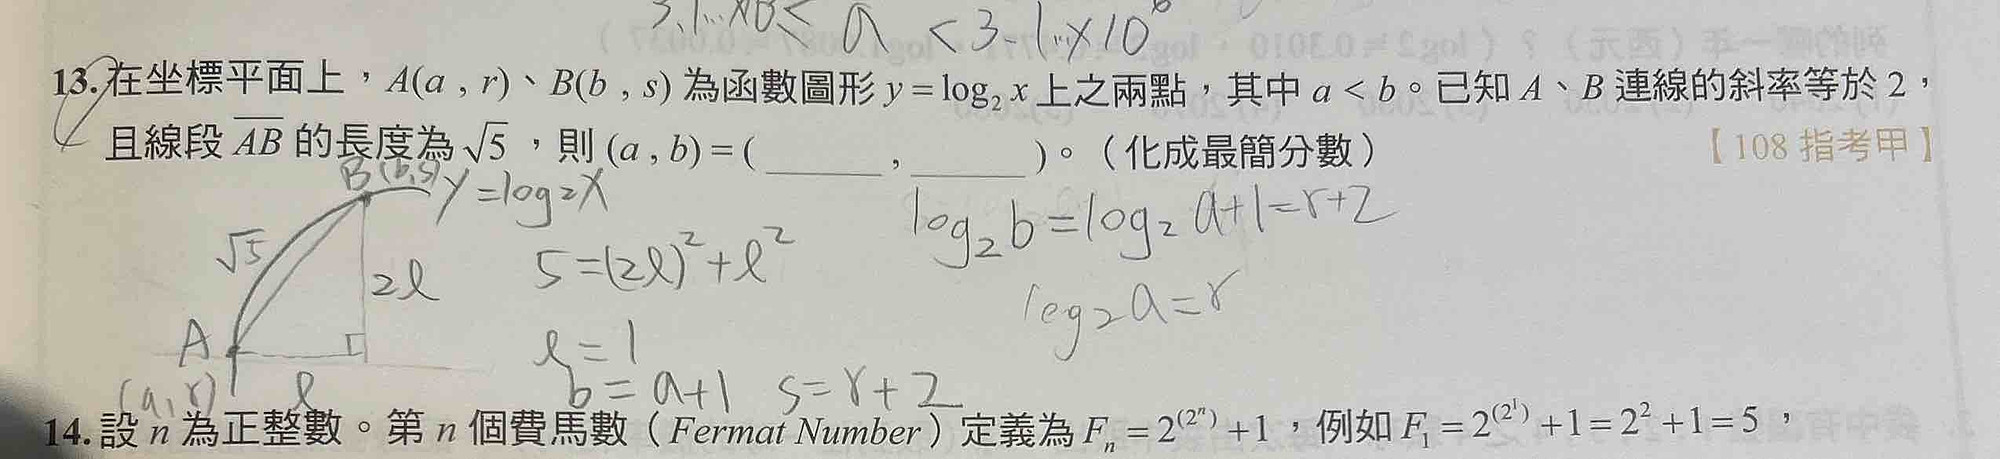 3.1...×10 < a < 3.1...×10⁶
13. 在坐標平面上，A(a , r)、B(b , s) 為函數圖形 y = log₂ x 上之兩點，其中 a < b。已知 A、B 連線的斜率等於 2，
且線段 AB 的長度為 √5 ，則 (a , b) = ( ______ , ______ )。（化成最簡分數）
【108 指考甲】
B(b,s) y=log₂x
√5
2l
A
(a,r)
l
5=(2l)²+l²
l=1
b=a+1 s=r+2
log₂b=log₂a+1=r+2
log₂a=r
14. 設 n 為正整數。第 n 個費馬數（Fermat Number）定義為 Fₙ = 2^(2ⁿ) + 1，例如 F₁ = 2^(2¹) + 1 = 2² + 1 = 5，